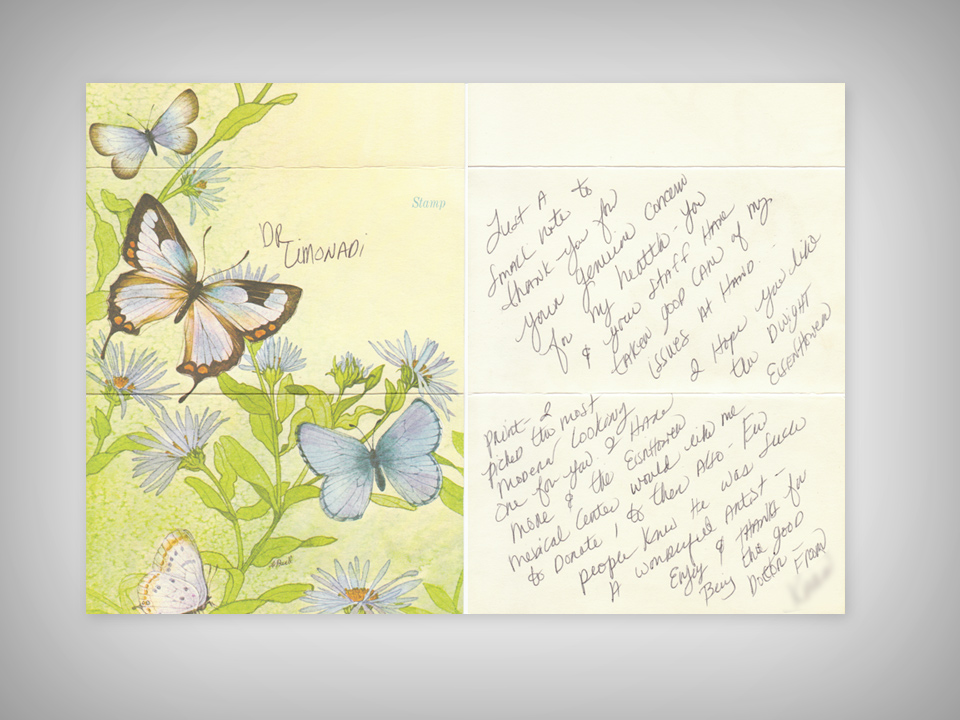 Stamp
DR
LIMONADI
Just A
small note to
thank you for
your genuine concern
for my health - you
& your STAFF HAVE
TAKEN good care of my
issues at HAND.
I Hope you like
the DWIGHT
EISENHOWER
print - I
picked the most
modern looking
one for you. I HAVE
more & the EisnHower
medical center would like me
to Donate 1 to them Also - Few
people knew He was Such
A wonderful Artist -
Enjoy & THANKS for
Being the good
Doctor - Fran